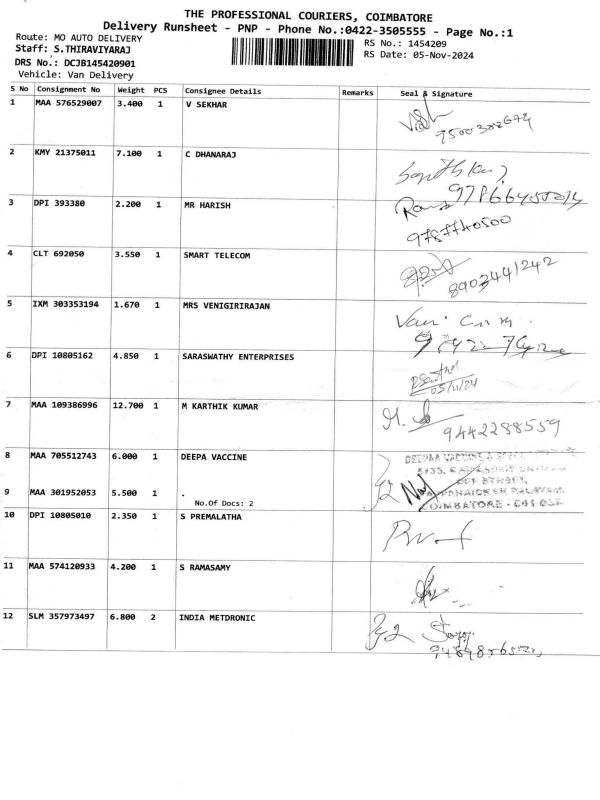 THE PROFESSIONAL COURIERS, COIMBATORE
Delivery Runsheet - PNP - Phone No.:0422-3505555 - Page No.:1
Route: MO AUTO DELIVERY
RS No.: 1454209
Staff: S.THIRAVIYARAJ
RS Date: 05-Nov-2024
DRS No.: DCJB145420901
Vehicle: Van Delivery
S No Consignment No Weight PCS Consignee Details Remarks Seal & Signature
1 MAA 576529007 3.400 1 V SEKHAR
2 KMY 21375011 7.100 1 C DHANARAJ
3 DPI 393380 2.200 1 MR HARISH
9787740500
4 CLT 692050 3.550 1 SMART TELECOM
8903441242
5 IXM 303353194 1.670 1 MRS VENIGIRIRAJAN
6 DPI 10805162 4.850 1 SARASWATHY ENTERPRISES
05/11/24
7 MAA 109386996 12.700 1 M KARTHIK KUMAR
9442288559
8 MAA 705512743 6.000 1 DEEPA VACCINE
9 MAA 301952053 5.500 1 .
No.Of Docs: 2
COIMBATORE -
10 DPI 10805010 2.350 1 S PREMALATHA
11 MAA 574120933 4.200 1 S RAMASAMY
12 SLM 357973497 6.800 2 INDIA METDRONIC